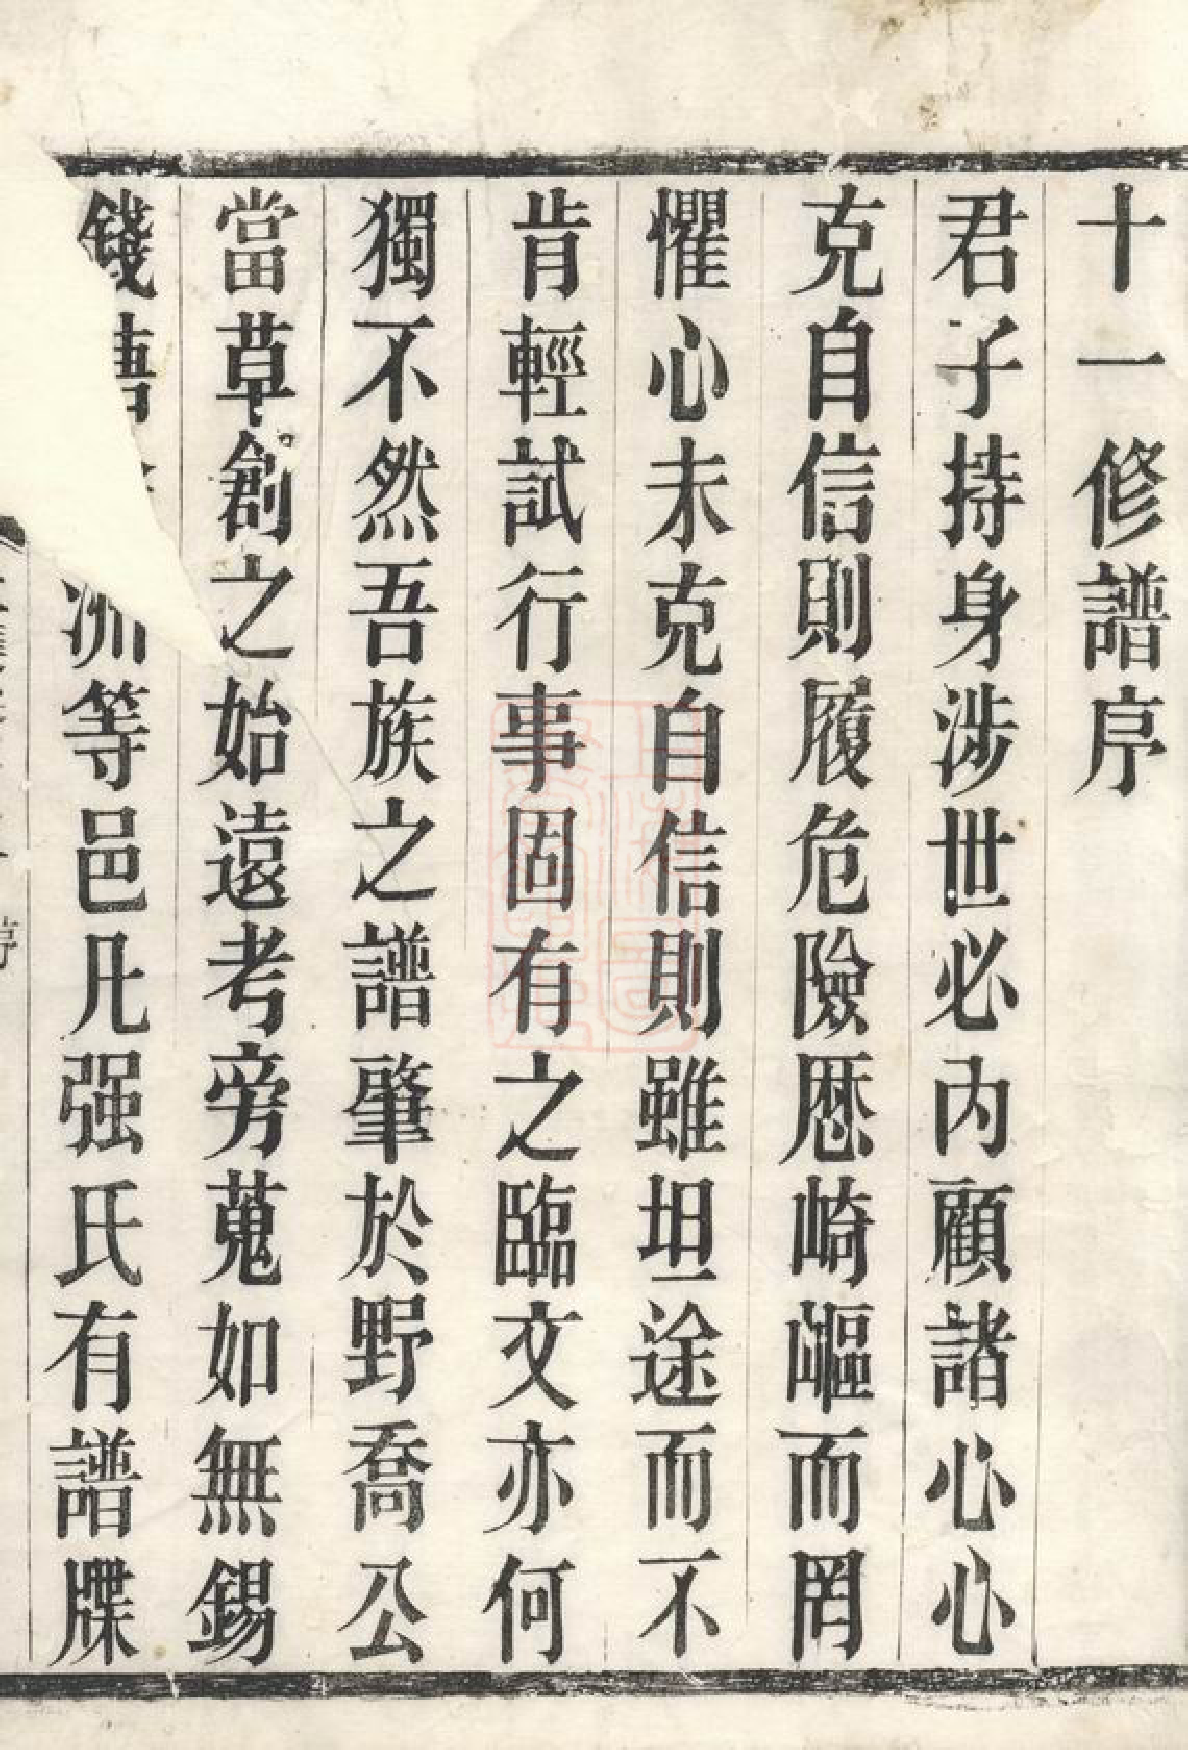 十一修譜序
君子持身涉世必內顧諸心心
克自信則履危險歷崎嶇而罔
懼心未克自信則雖坦途而不
肯輕試行事固有之臨文亦何
獨不然吾族之譜肇於野喬公
當草創之始遠考旁蒐如無錫
錢塘洲等邑凡强氏有譜牒
序